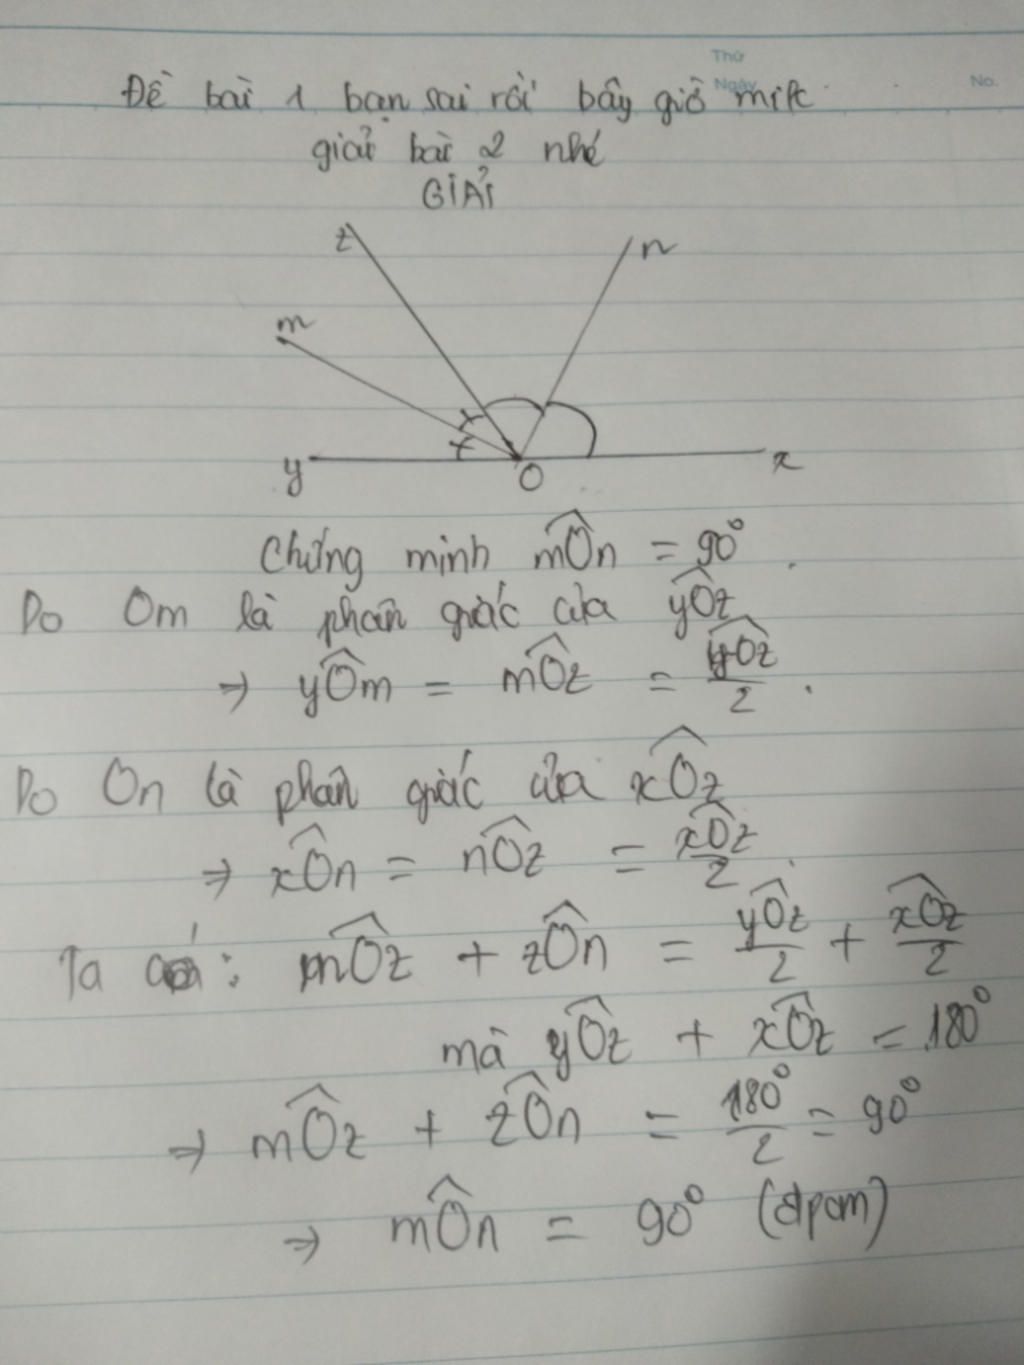 Thứ
Ngày
No.
Đề bài 1 bạn sai rồi bây giờ mik
giải bài 2 nhé
GIẢI
z
n
m
y
O
x
Chứng minh mÔn = 90°.
Do Om là phân giác của yÔz
⇒ yÔm = mÔz = yÔz/2.
Do On là phân giác của xÔz
⇒ xÔn = nÔz = xÔz/2.
Ta có: mÔz + zÔn = yÔz/2 + xÔz/2
mà yÔz + xÔz = 180°
⇒ mÔz + zÔn = 180°/2 = 90°
⇒ mÔn = 90° (đpcm)